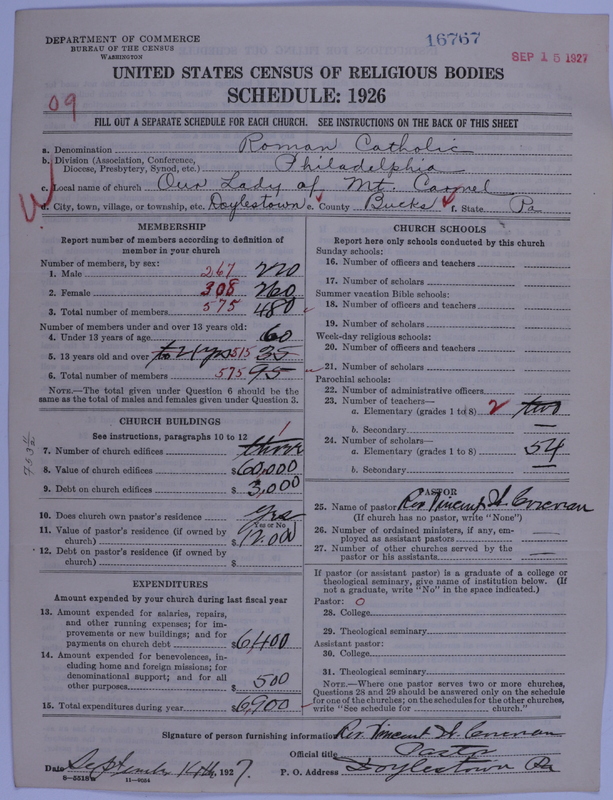 DEPARTMENT OF COMMERCE
BUREAU OF THE CENSUS
WASHINGTON
16767
SEP 15 1927
UNITED STATES CENSUS OF RELIGIOUS BODIES
SCHEDULE: 1926
09
FILL OUT A SEPARATE SCHEDULE FOR EACH CHURCH. SEE INSTRUCTIONS ON THE BACK OF THIS SHEET
a. Denomination Roman Catholic
b. Division (Association, Conference, Diocese, Presbytery, Synod, etc.) Philadelphia
c. Local name of church Our Lady of Mt. Carmel
d. City, town, village, or township, etc. Doylestown e. County Bucks f. State Pa
MEMBERSHIP
Report number of members according to definition of
member in your church
Number of members, by sex:
1. Male 267 220
2. Female 308 260
3. Total number of members 575 480
Number of members under and over 13 years old:
4. Under 13 years of age 60
5. 13 years old and over to 14 yrs 515 35
6. Total number of members 575 95
NOTE.—The total given under Question 6 should be
the same as the total of males and females given under Question 3.
CHURCH BUILDINGS
See instructions, paragraphs 10 to 12
7. Number of church edifices three 1
8. Value of church edifices $60,000
9. Debt on church edifices $3,000
10. Does church own pastor's residence yes
Yes or No
11. Value of pastor's residence (if owned by
church) $12.000
12. Debt on pastor's residence (if owned by
church) $
EXPENDITURES
Amount expended by your church during last fiscal year
13. Amount expended for salaries, repairs,
and other running expenses; for im-
provements or new buildings; and for
payments on church debt $6,400
14. Amount expended for benevolences, in-
cluding home and foreign missions; for
denominational support; and for all
other purposes $500
15. Total expenditures during year $6,900
CHURCH SCHOOLS
Report here only schools conducted by this church
Sunday schools:
16. Number of officers and teachers
17. Number of scholars
Summer vacation Bible schools:
18. Number of officers and teachers
19. Number of scholars
Week-day religious schools:
20. Number of officers and teachers
21. Number of scholars
Parochial schools:
22. Number of administrative officers
23. Number of teachers—
a. Elementary (grades 1 to 8) 2 two
b. Secondary —
24. Number of scholars—
a. Elementary (grades 1 to 8) 54
b. Secondary —
PASTOR
25. Name of pastor Rev Vincent Corcoran
(If church has no pastor, write "None")
26. Number of ordained ministers, if any, em-
ployed as assistant pastors —
27. Number of other churches served by the
pastor or his assistants —
If pastor (or assistant pastor) is a graduate of a college or
theological seminary, give name of institution below. (If
not a graduate, write "No" in the space indicated.)
Pastor: O
28. College
29. Theological seminary
Assistant pastor:
30. College
31. Theological seminary
NOTE.—Where one pastor serves two or more churches,
Questions 28 and 29 should be answered only on the schedule
for one of the churches; on the schedules for the other churches,
write "See schedule for church."
Signature of person furnishing information Rev. Vincent Corcoran
Official title Pastor
Date September 14th, 1927. P. O. Address Doylestown Pa